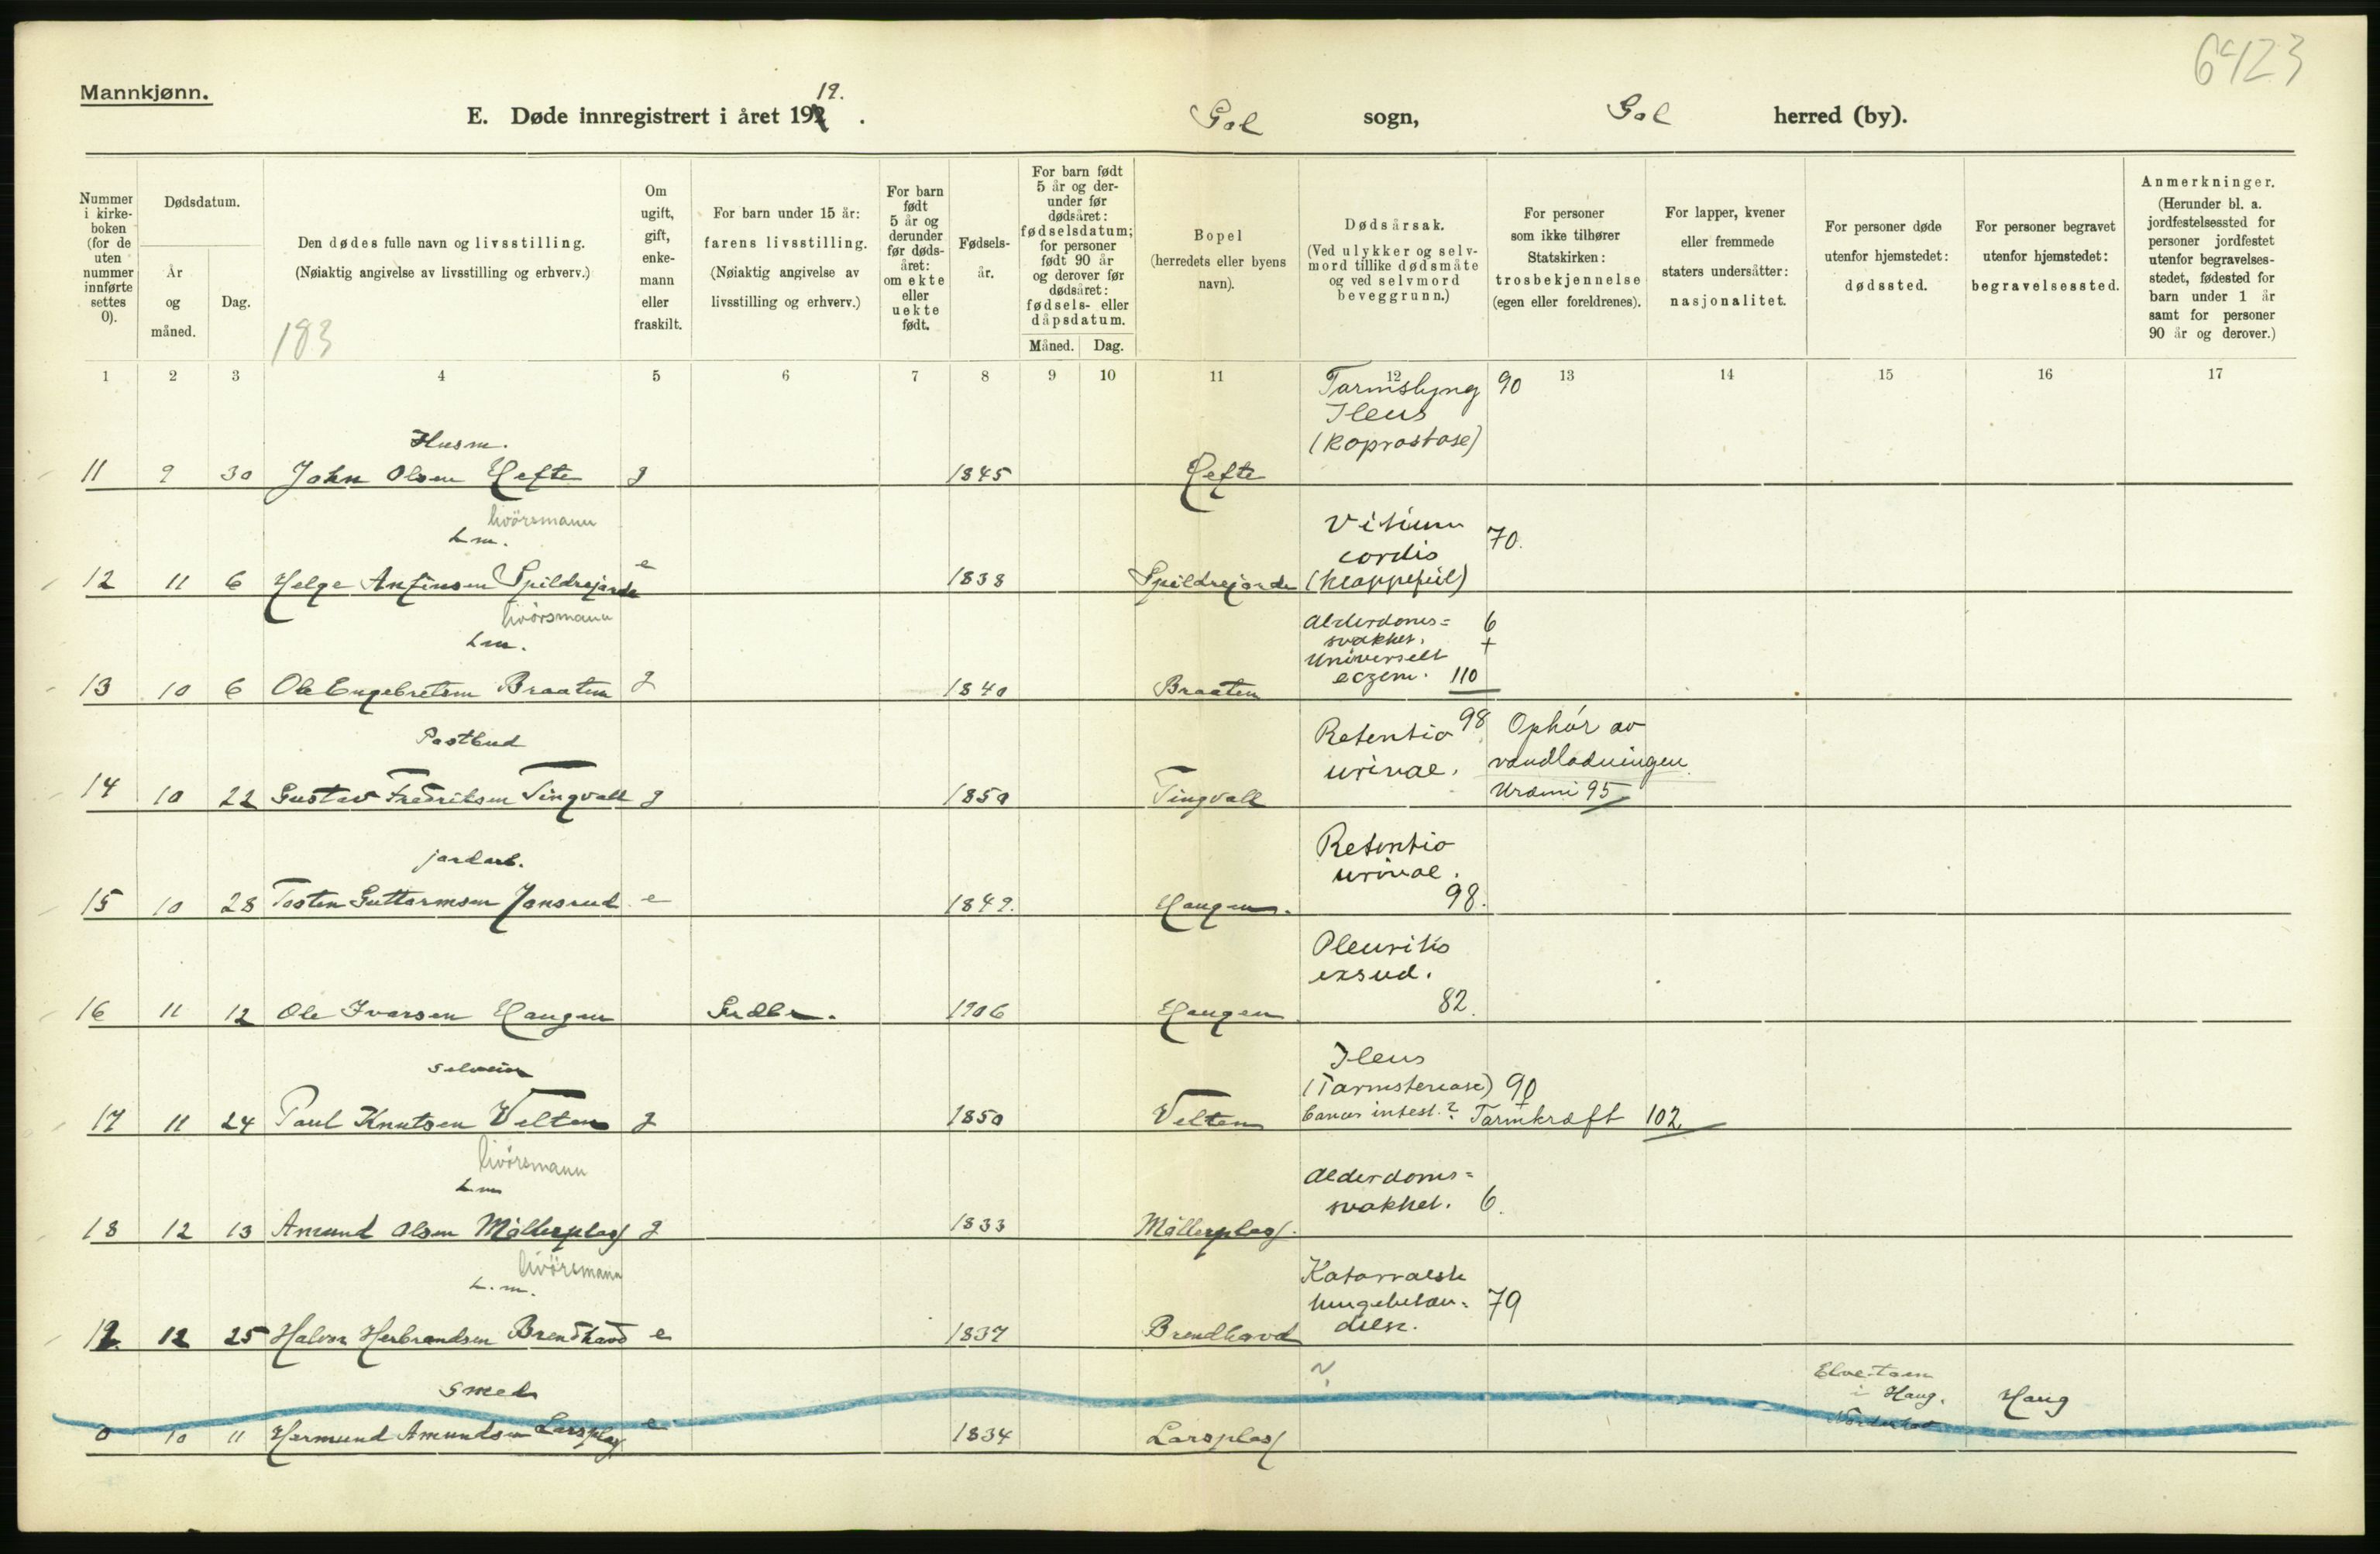 6423
Mannkjønn.
E. Døde innregistrert i året 192 19.
Gol sogn, Gol herred (by).
Nummer i kirkeboken (for de uten nummer innførte settes 0).
Dødsdatum.
År og måned.
Dag.
Den dødes fulle navn og livsstilling.
(Nøiaktig angivelse av livsstilling og erhverv.)
183
Om ugift, gift, enkemann eller fraskilt.
For barn under 15 år:
farens livsstilling.
(Nøiaktig angivelse av livsstilling og erhverv.)
For barn født 5 år og derunder før dødsåret: om ekte eller uekte født.
Fødselsår.
For barn født 5 år og derunder før dødsåret: fødselsdatum; for personer født 90 år og derover før dødsåret: fødsels- eller dåpsdatum.
Måned. Dag.
Bopel
(herredets eller byens navn).
Dødsårsak.
(Ved ulykker og selvmord tillike dødsmåte og ved selvmord beveggrunn.)
For personer som ikke tilhører Statskirken: trosbekjennelse (egen eller foreldrenes).
For lapper, kvener eller fremmede staters undersåtter: nasjonalitet.
For personer døde utenfor hjemstedet: dødssted.
For personer begravet utenfor hjemstedet: begravelsessted.
Anmerkninger.
(Herunder bl. a. jordfestelsessted for personer jordfestet utenfor begravelsesstedet, fødested for barn under 1 år samt for personer 90 år og derover.)
1 2 3 4 5 6 7 8 9 10 11 12 13 14 15 16 17
Tarmslyng 90
Ileus
(Koprostase)
Husm.
11 9 30 John Olsen Hefte g 1845 Hefte
livörsmann
L m.
Vitium
cordis 70.
(Klappefeil)
12 11 6 Helge Anfinsen Spildrejorde e 1838 Spildrejorde
livörsmann
L m.
Alderdoms= 6
svakhet. +
Universelt
eczem. 110
13 10 6 Ole Engebretsen Braaten g 1840 Braaten
Postbud
Retentio 98 Ophör av
urinae. vandladningen
Urämi 95
14 10 22 Gustav Fredriksen Tingvall g 1850 Tingvall
jordarb.
Retentio
urinae.
98.
15 10 28 Tosten Guttormsen Jonsrud e 1849. Haugen.
Pleuritis
exsud.
82.
16 11 12 Ole Ivarsen Haugen Grdbr. 1906 Haugen
selveier
Ileus
(Tarmstenose) 90
+
Cancer intest.? Tarmkræft 102
17 11 24 Paul Knutsen Velten g 1850 Velten
livörsmann
L m
Alderdoms=
svakhet. 6.
18 12 13 Amund Olsen Möllerplass g 1833 Möllerplass.
livörsmann
L. m.
Katarralsk
lungebetæn= 79
delse.
19 12 25 Halvor Herbrandsen Brendhovd e 1837 Brendhovd
smed
?
Elvetoen
i Haug. Haug
Norderhov
0 10 11 Hermund Amundsen Larsplass e 1834 Larsplass